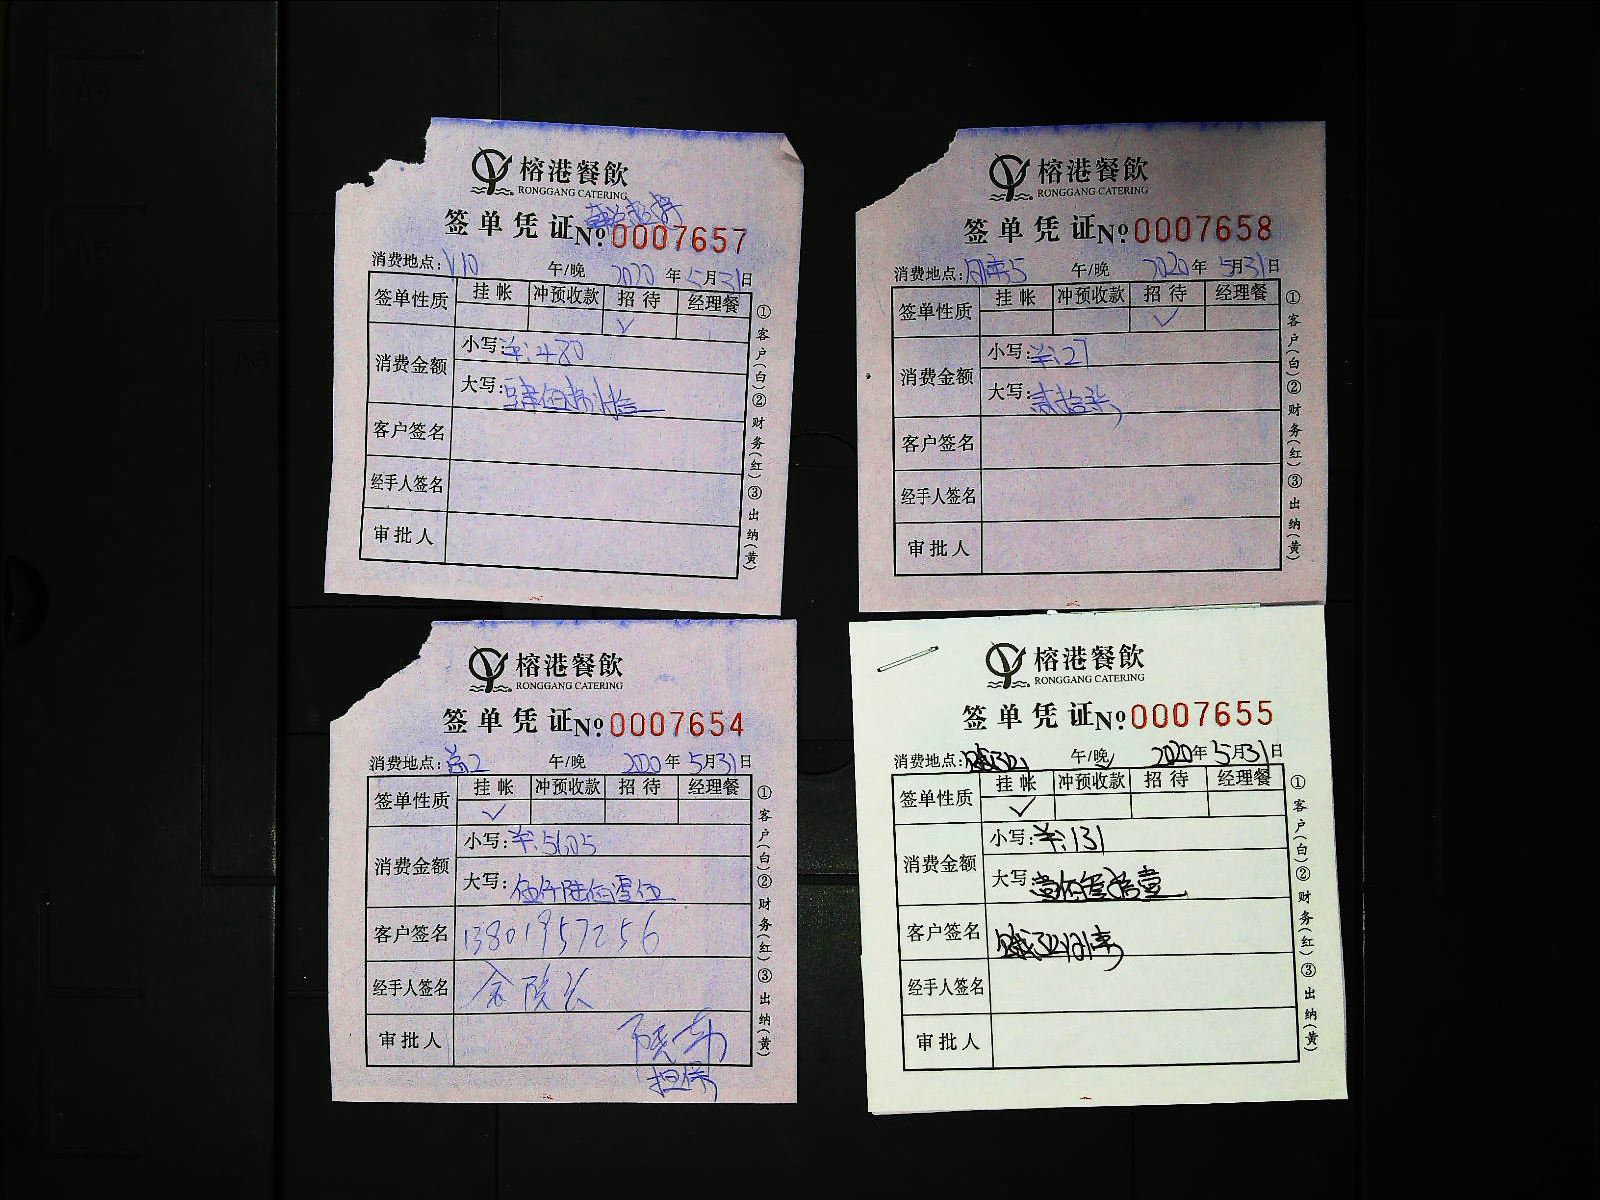 榕港餐飲
RONGGANG CATERING
签单凭证 Nº 0007657
消费地点: V10 午/晚 2020年5月31日
签单性质 挂帐 冲预收款 招待 经理餐
✓
消费金额 小写: ¥:480
大写: 肆佰捌拾
客户签名
经手人签名
审批人
①客户(白)②财务(红)③出纳(黄)
榕港餐飲
RONGGANG CATERING
签单凭证 Nº 0007658
消费地点: 午/晚 2020年5月31日
签单性质 挂帐 冲预收款 招待 经理餐
✓
消费金额 小写: ¥:27
大写: 贰拾柒
客户签名
经手人签名
审批人
①客户(白)②财务(红)③出纳(黄)
榕港餐飲
RONGGANG CATERING
签单凭证 Nº 0007654
消费地点: 午/晚 2020年5月31日
签单性质 挂帐 冲预收款 招待 经理餐
✓
消费金额 小写: ¥:5605
大写: 伍仟陆佰零伍
客户签名 13801957256
经手人签名
审批人
担保
①客户(白)②财务(红)③出纳(黄)
榕港餐飲
RONGGANG CATERING
签单凭证 Nº 0007655
消费地点: 午/晚✓ 2020年5月31日
签单性质 挂帐 冲预收款 招待 经理餐
✓
消费金额 小写: ¥:131
大写 壹佰叁拾壹
客户签名
经手人签名
审批人
①客户(白)②财务(红)③出纳(黄)